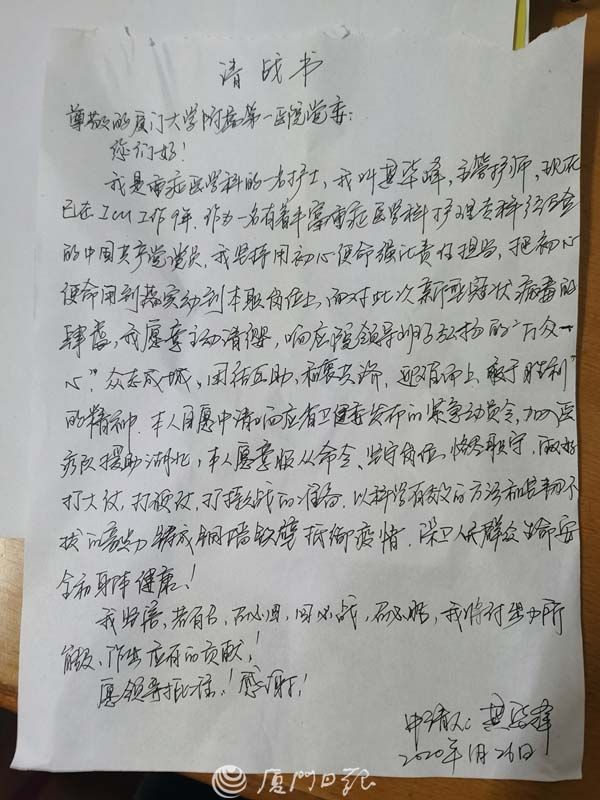 请战书
尊敬的厦门大学附属第一医院党委:
您们好!
我是重症医学科的一名护士,我叫 峰,主管护师,现在
已在ICU工作9年.作为一名有着丰富重症医学科护理专科经验
的中国共产党党员.我坚持用初心使命强化责任担当,把初心
使命用到落实动到本职岗位上,面对此次新型冠状病毒的
肆虐,我愿意主动请缨,响应院领导 弘扬的"万众一
心"众志成城,团结互助、和衷共济、迎难而上、敢于胜利"
的精神.本人自愿申请响应省卫健委发布的紧急动员令,加入医
疗队援助湖北,本人愿意服从命令、坚守岗位、恪尽职守,做好
打大仗,打硬仗,打持久战的准备.以科学有效的方法和坚韧不
拔的毅力铸成铜墙铁壁抵御疫情.保卫人民群众生命安
全和身体健康!
我坚信,若有召,召必回,回必战,召必胜,我将付出力所
能及、作出应有的贡献!
愿领导批准!感谢!
申请人: 峰
2020年1月26日
厦门日报